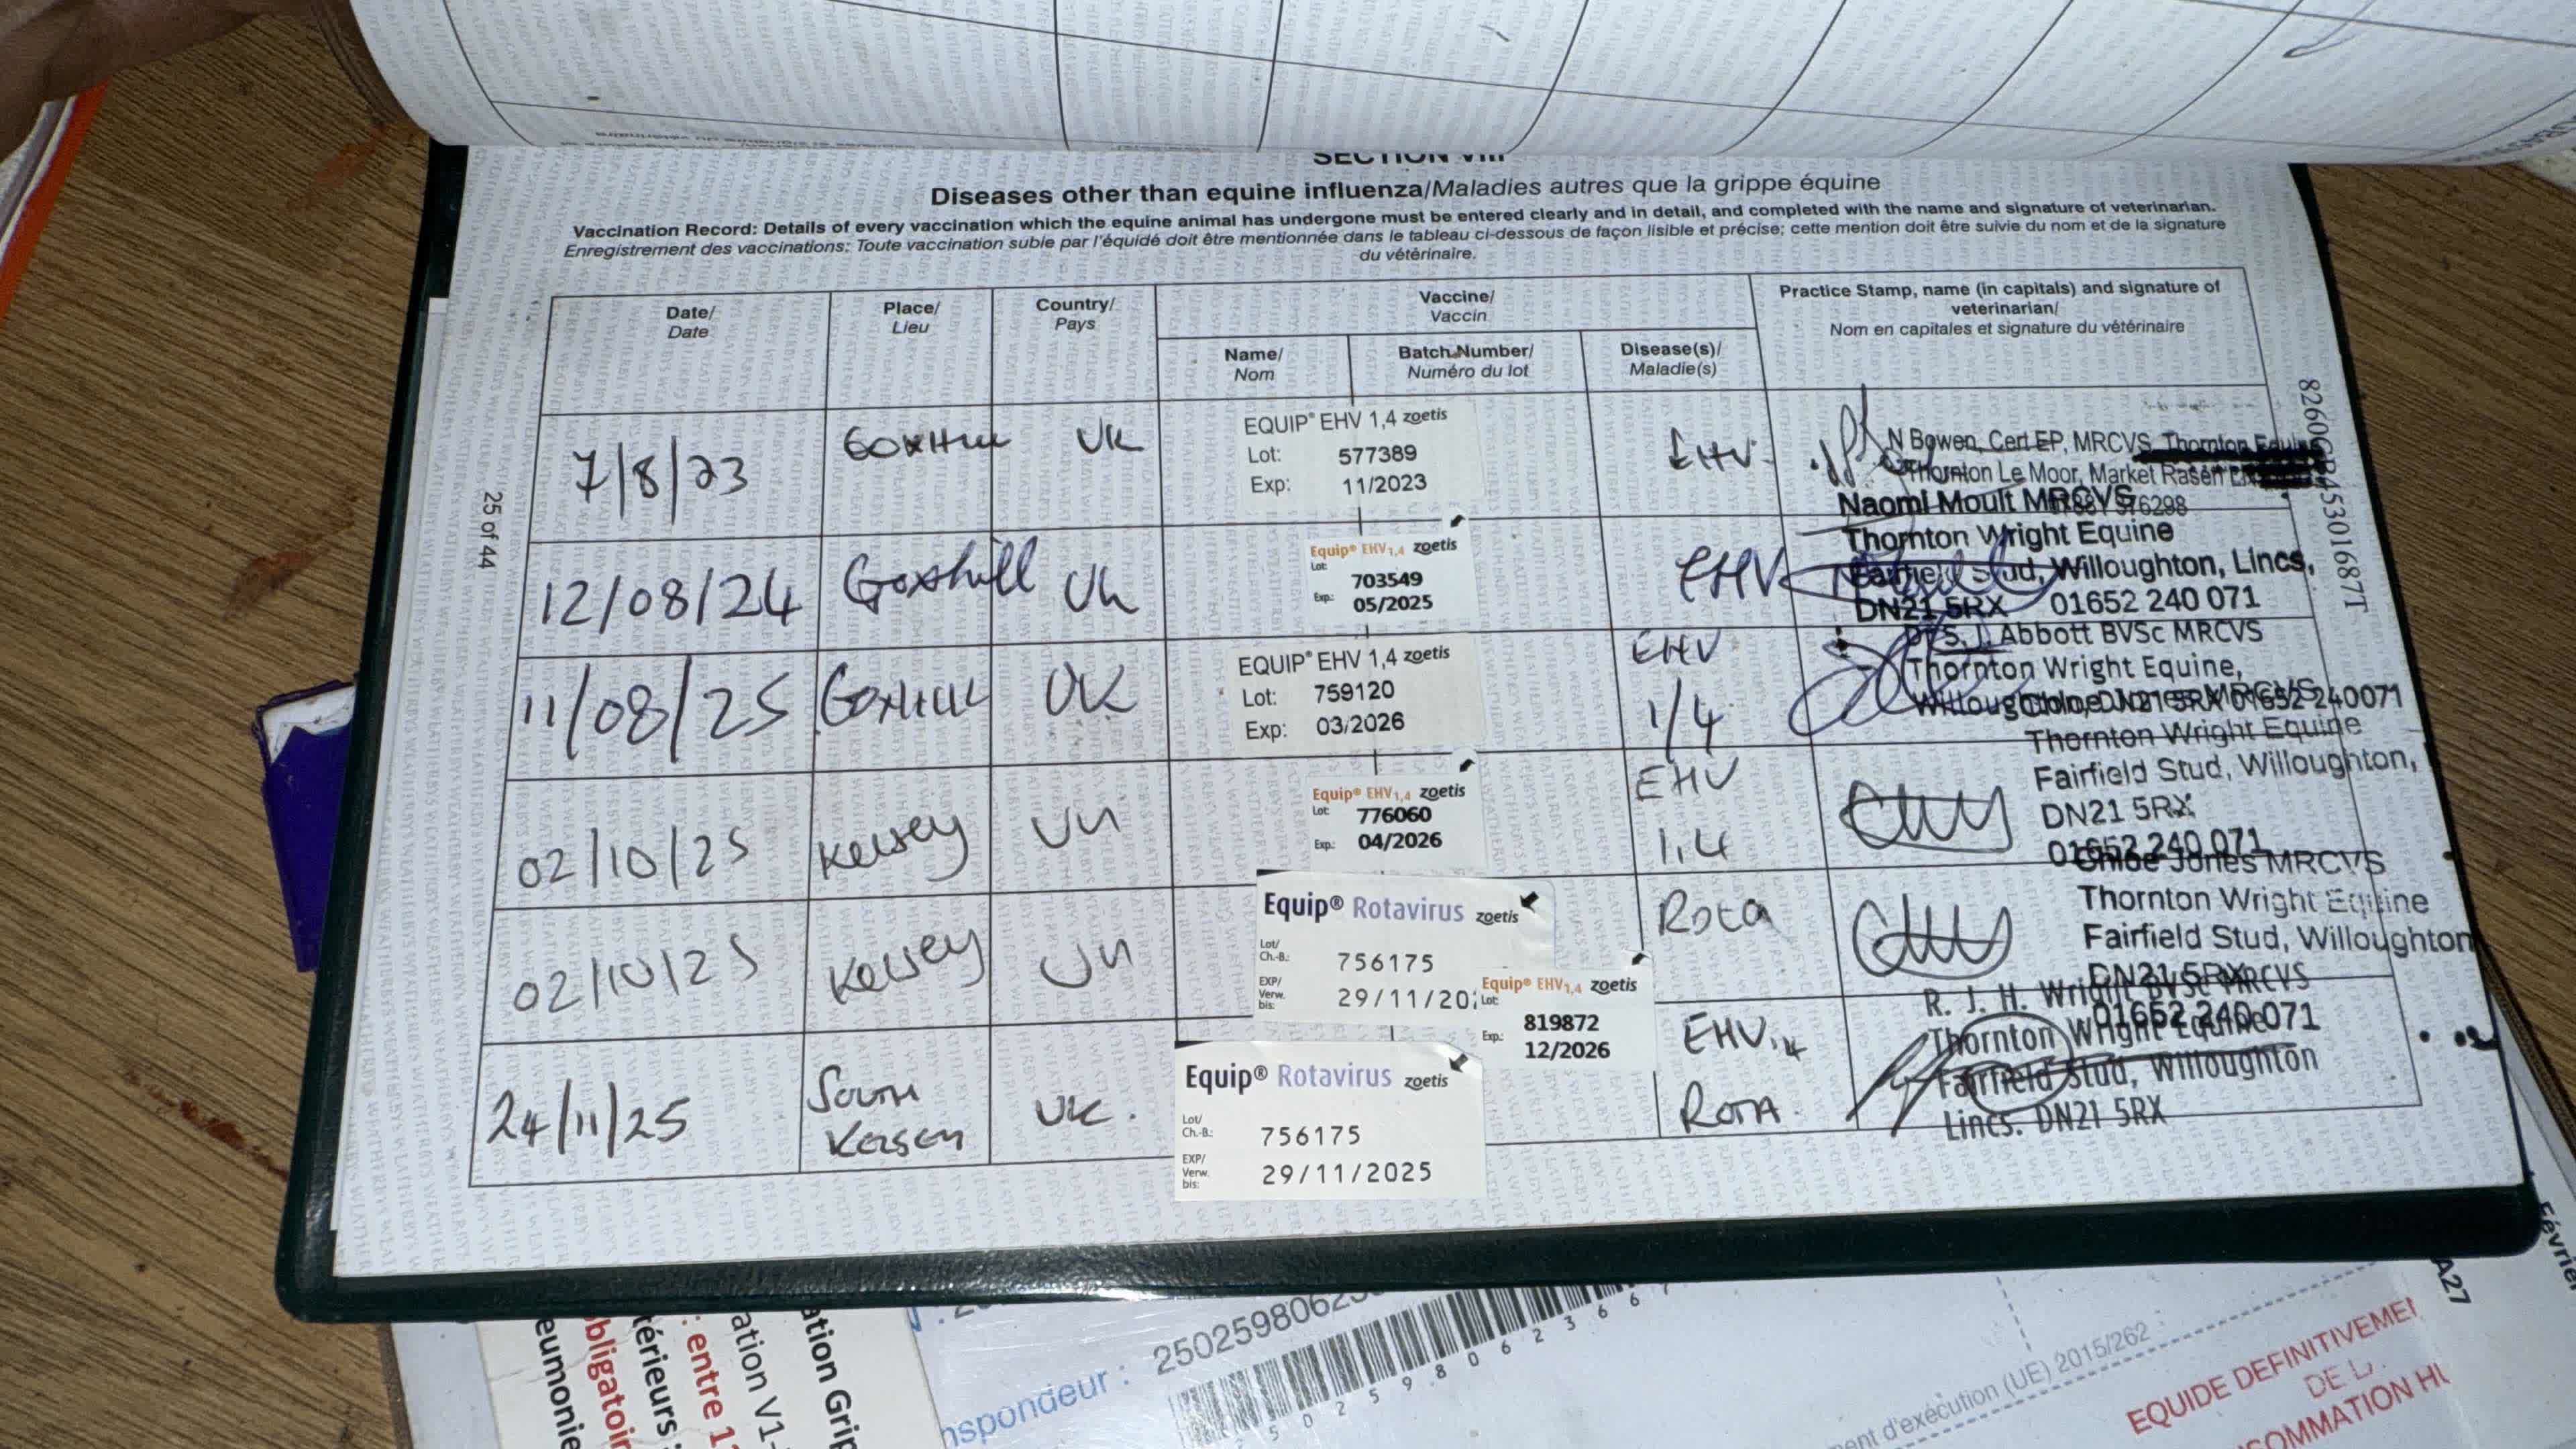 SECTION VIII
Diseases other than equine influenza/Maladies autres que la grippe équine
Vaccination Record: Details of every vaccination which the equine animal has undergone must be entered clearly and in detail, and completed with the name and signature of veterinarian.
Enregistrement des vaccinations: Toute vaccination subie par l'équidé doit être mentionnée dans le tableau ci-dessous de façon lisible et précise; cette mention doit être suivie du nom et de la signature
du vétérinaire.
Date/
Date
Place/
Lieu
Country/
Pays
Vaccine/
Vaccin
Name/
Nom
Batch Number/
Numéro du lot
Disease(s)/
Maladie(s)
Practice Stamp, name (in capitals) and signature of
veterinarian/
Nom en capitales et signature du vétérinaire
7/8/23
GOXHILL
UK
EQUIP® EHV 1,4 zoetis
Lot: 577389
Exp: 11/2023
EHV
N Bowen, Cert EP, MRCVS, Thornton
Thornton Le Moor, Market Rasen
12/08/24
Goxhill
UK
Equip® EHV1,4 zoetis
Lot: 703549
Exp.: 05/2025
EHV
Naomi Moult MRCVS
Thornton Wright Equine
Fairfield Stud, Willoughton, Lincs,
DN21 5RX 01652 240 071
11/08/25
GOXHILL
UK
EQUIP® EHV 1,4 zoetis
Lot: 759120
Exp: 03/2026
EHV
1/4
S. J. Abbott BVSc MRCVS
Thornton Wright Equine,
Willoughton, DN21 5RX 01652 240071
02/10/25
Kelsey
UK
Equip® EHV1,4 zoetis
Lot: 776060
Exp.: 04/2026
EHV
1,4
Chloe Jones MRCVS
Thornton Wright Equine
Fairfield Stud, Willoughton,
DN21 5RX
01652 240 071
02/10/25
Kelsey
UK
Equip® Rotavirus zoetis
Lot/
Ch.-B.: 756175
EXP/
Verw.
bis: 29/11/20
Rota
Chloe Jones MRCVS
Thornton Wright Equine
Fairfield Stud, Willoughton
DN21 5RX
01652 240 071
24/11/25
SOUTH
KELSEY
UK.
Equip® EHV1,4 zoetis
Lot: 819872
Exp.: 12/2026
Equip® Rotavirus zoetis
Lot/
Ch.-B.: 756175
EXP/
Verw.
bis: 29/11/2025
EHV1,4
ROTA
R. J. H. Wright BVSc MRCVS
Thornton Wright Equine
Fairfield Stud, Willoughton
Lincs. DN21 5RX
25 of 44
eumonie
obligatoir
térieurs
: entre 1
ation V1-
ation Grip
nspondeur :
2 5 0 2 5 9 8 0 6 2 3 6 6
ent d'exécution (UE) 2015/262
EQUIDE DEFINITIVEME
DE L
SOMMATION HU
A27
Févrie